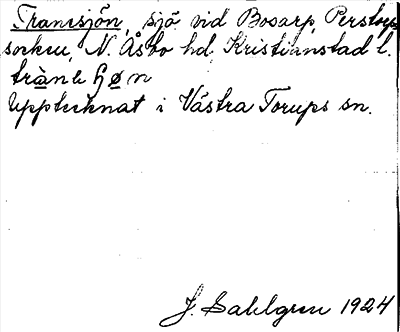 Tranesjön, sjö vid Bosarp, Perstorps
socken, N. Åsbo hd Kristianstad l.
Upptecknat i Västra Torups sn.
J. Sahlgren 1924